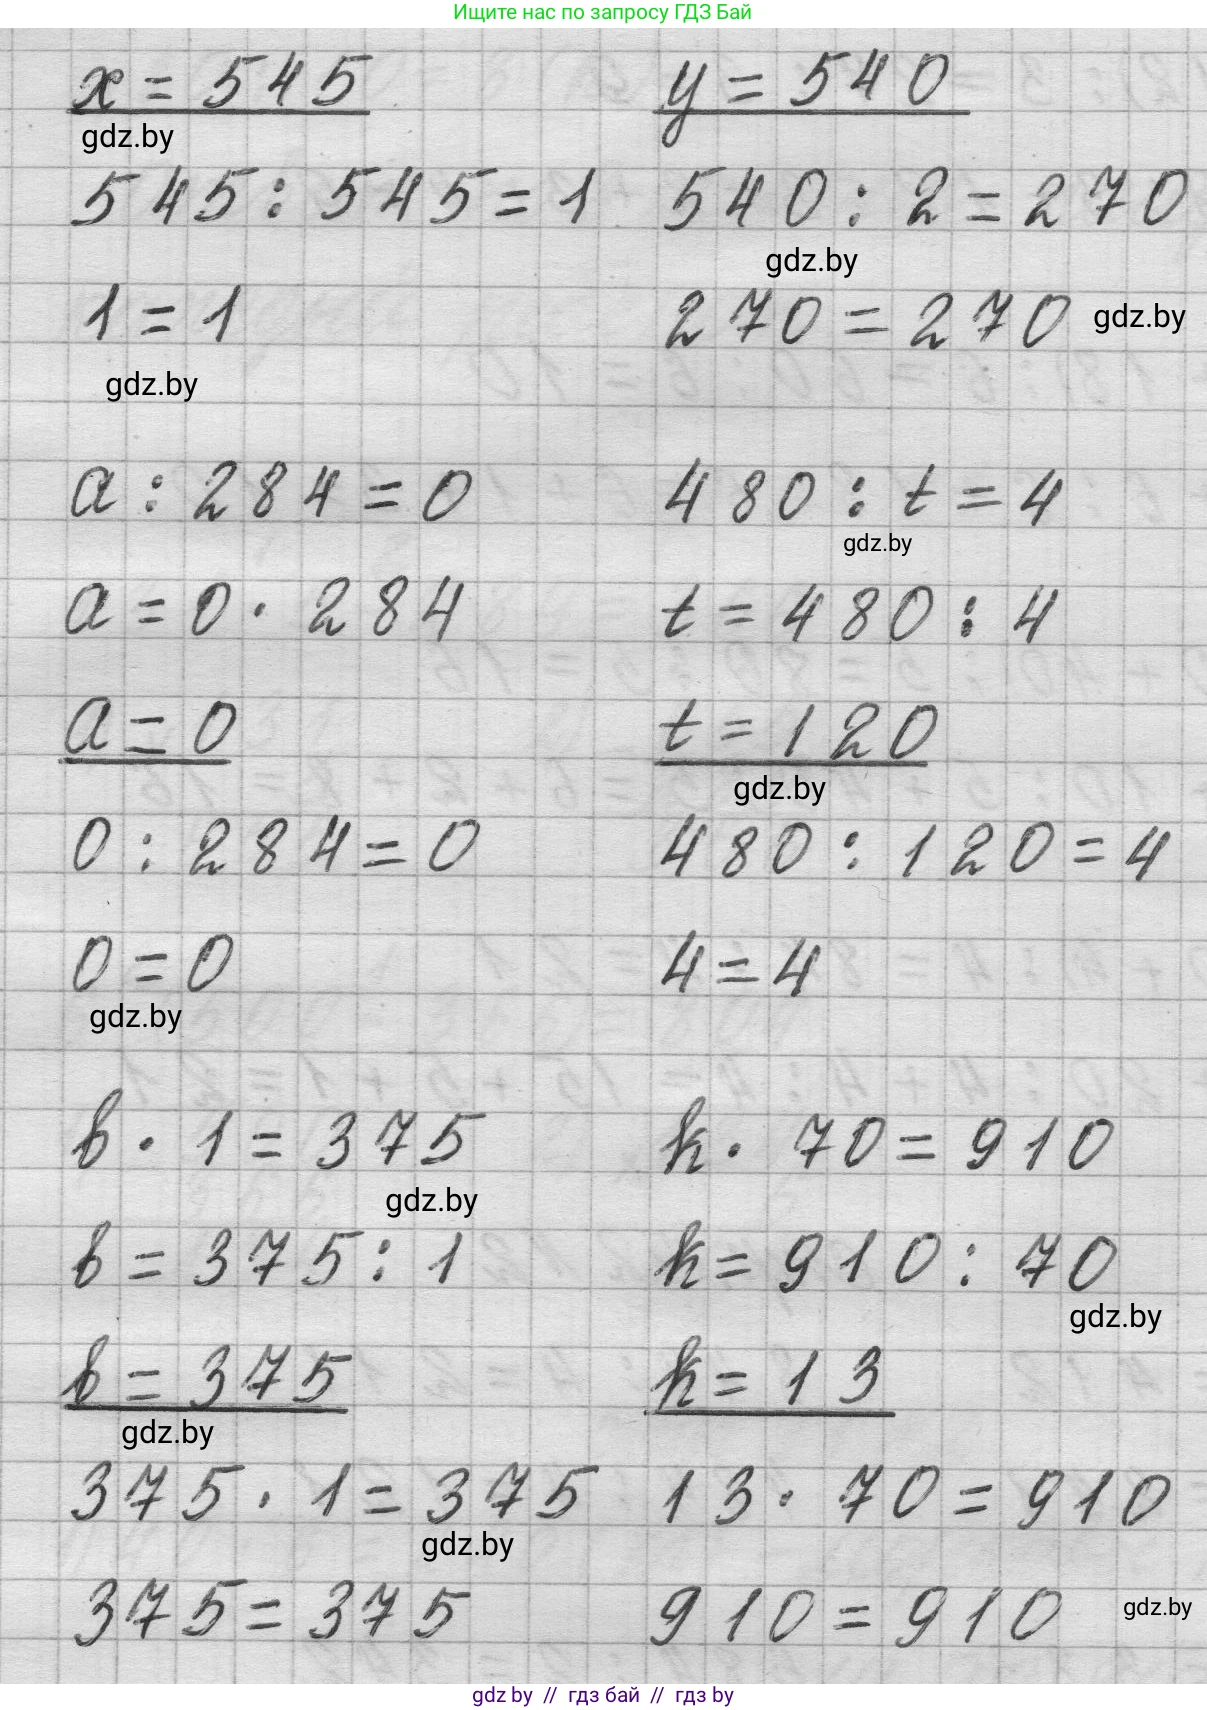 Ищите нас по запросу ГДЗ Бай
x = 545
y = 540
gdz.by
545 : 545 = 1
540 : 2 = 270
gdz.by
1 = 1
270 = 270
gdz.by
gdz.by
a : 284 = 0
480 : t = 4
gdz.by
a = 0 · 284
t = 480 : 4
a = 0
t = 120
gdz.by
0 : 284 = 0
480 : 120 = 4
0 = 0
4 = 4
gdz.by
b · 1 = 375
k · 70 = 910
gdz.by
b = 375 : 1
k = 910 : 70
gdz.by
b = 375
k = 13
gdz.by
375 · 1 = 375
13 · 70 = 910
gdz.by
375 = 375
910 = 910
gdz.by
gdz by // гдз бай // гдз by